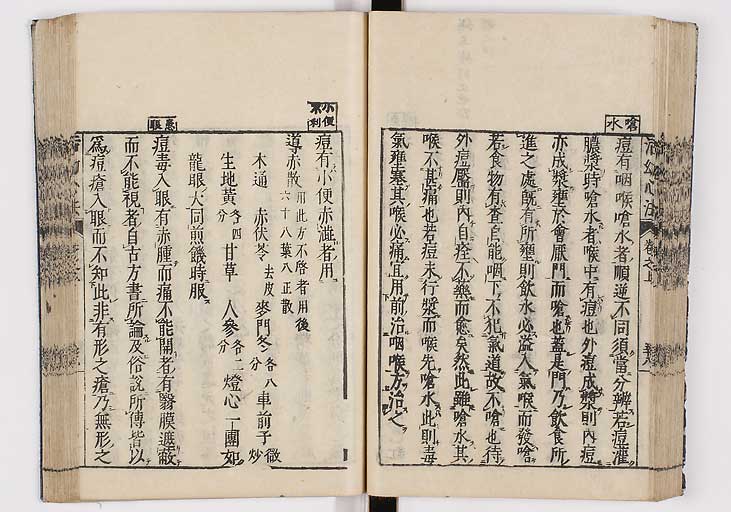 嗆水
痘有咽喉嗆水者順逆不同須當分辨若痘灌
膿漿時嗆水者喉中有痘也外痘成漿則內痘
亦成漿壅於會厭門而嗆也蓋是門乃飲食所
進之處既有所壅則飲水必溢入氣喉而發嗆
若食物有查自能咽下不犯氣道故不嗆也待
外痘靨則內自痊不藥而愈矣然此雖嗆水其
喉不甚痛也若痘未行漿而喉先嗆水此則毒
氣壅塞其喉必痛宜用前治咽喉方治之
小便不利
痘有小便赤澁者用
導赤散 用此方不啓者用後六十八葉八正散
木通 赤伏苓去皮 麥門冬各八分 車前子微炒
生地黃各四分 甘草 人參各二分 燈心一團如
龍眼大同煎饑時服
患眼
痘毒入眼有赤腫而痛不能開者有翳膜遮蔽
而不能視者自古方書所論及俗說所傳皆以
爲痘瘡入眼而不知此非有形之瘡乃無形之
治幼心法 卷之